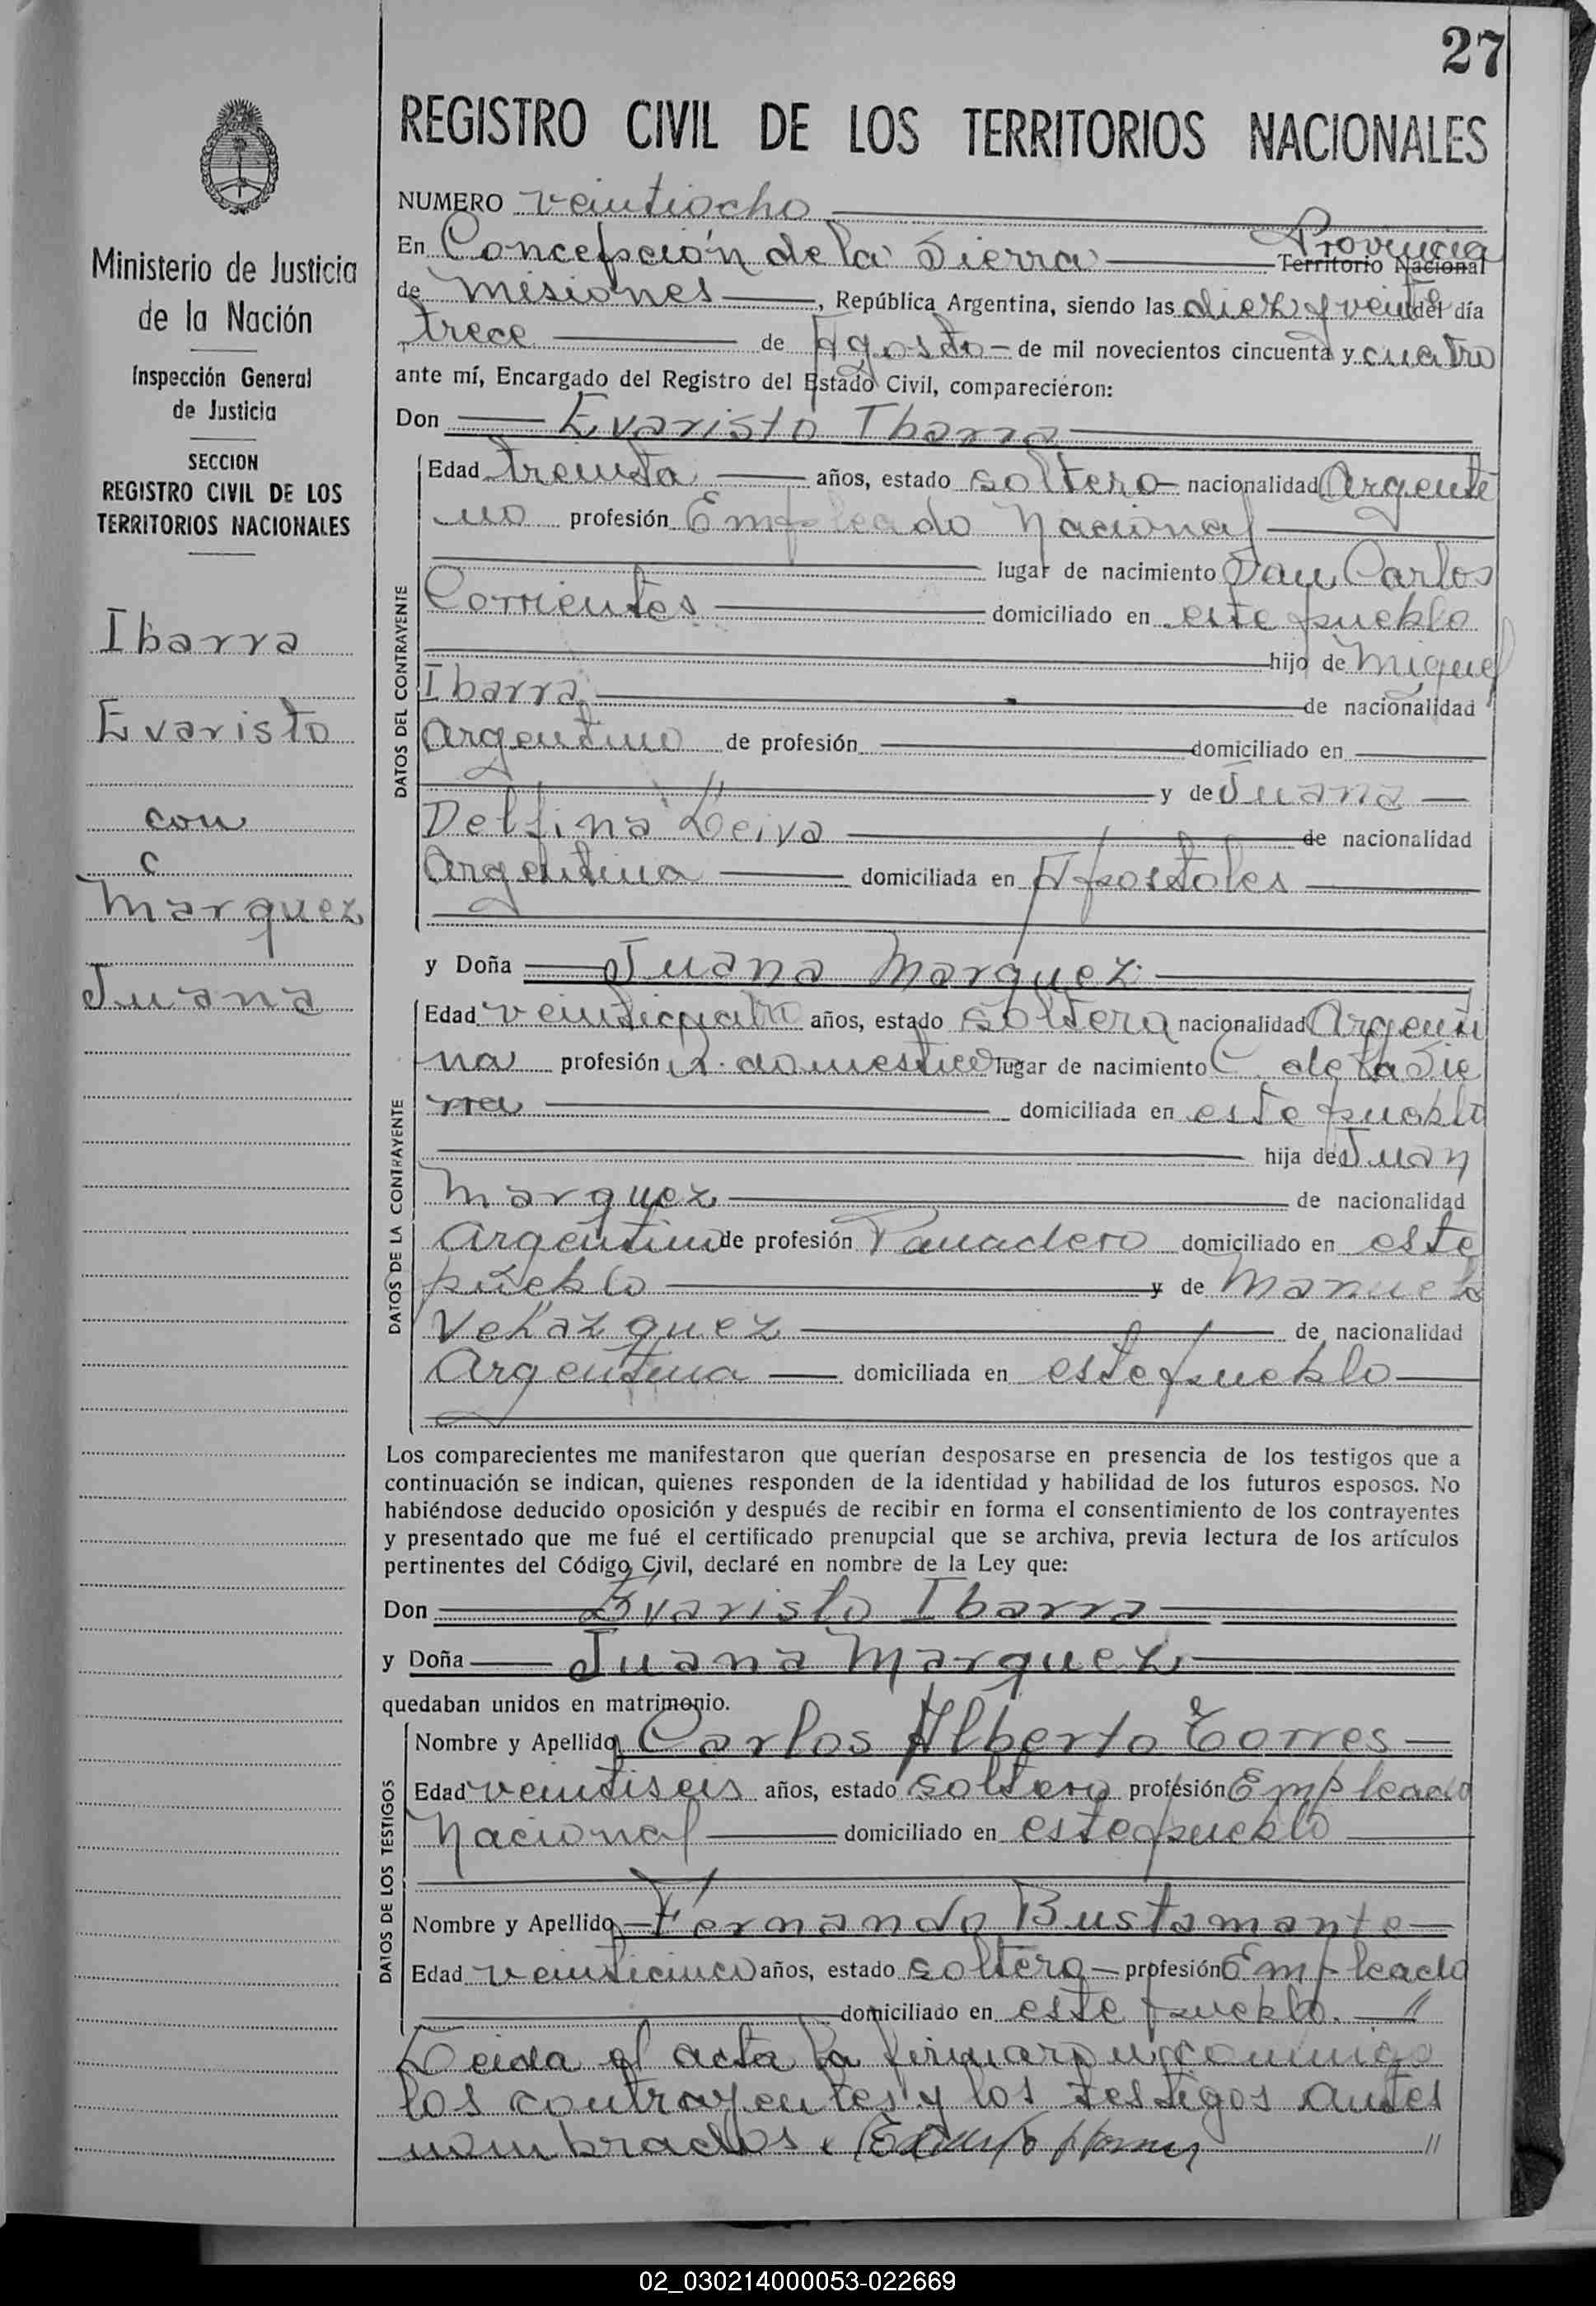 27
REGISTRO CIVIL DE LOS TERRITORIOS NACIONALES
Ministerio de Justicia
de la Nación
Inspección General
de Justicia
SECCION
REGISTRO CIVIL DE LOS
TERRITORIOS NACIONALES
Ibarra
Evaristo
con
Marquez
Juana
NUMERO veintiocho
En Concepción de la Sierra Provincia
Territorio Nacional
de Misiones, República Argentina, siendo las diez y veinte del día
trece de Agosto de mil novecientos cincuenta y cuatro
ante mí, Encargado del Registro del Estado Civil, comparecieron:
Don Evaristo Ibarra
DATOS DEL CONTRAYENTE
Edad treinta años, estado soltero nacionalidad Argenti
no profesión Empleado Nacional
lugar de nacimiento San Carlos
Corrientes domiciliado en este pueblo
hijo de Miguel
Ibarra de nacionalidad
Argentino de profesión domiciliado en
y de Juana
Delfina Leiva de nacionalidad
Argentina domiciliada en Apostoles
y Doña Juana Marquez
DATOS DE LA CONTRAYENTE
Edad veinticuatro años, estado soltera nacionalidad Argenti
na profesión Q. domestico lugar de nacimiento C. de la Sie
rra domiciliada en este pueblo
hija de Juan
Marquez de nacionalidad
Argentino de profesión Panadero domiciliado en este
pueblo y de Manuela
Velazquez de nacionalidad
Argentina domiciliada en este pueblo
Los comparecientes me manifestaron que querían desposarse en presencia de los testigos que a
continuación se indican, quienes responden de la identidad y habilidad de los futuros esposos. No
habiéndose deducido oposición y después de recibir en forma el consentimiento de los contrayentes
y presentado que me fué el certificado prenupcial que se archiva, previa lectura de los artículos
pertinentes del Código Civil, declaré en nombre de la Ley que:
Don Evaristo Ibarra
y Doña Juana Marquez
quedaban unidos en matrimonio.
DATOS DE LOS TESTIGOS
Nombre y Apellido Carlos Alberto Torres
Edad veintiseis años, estado soltero profesión Empleado
Nacional domiciliado en este pueblo
Nombre y Apellido Fernando Bustamante
Edad veinticinco años, estado soltero profesión Empleado
domiciliado en este pueblo.
Leida el acta la firmaron conmigo
los contrayentes y los testigos antes
nombrados.
02_030214000053-022669